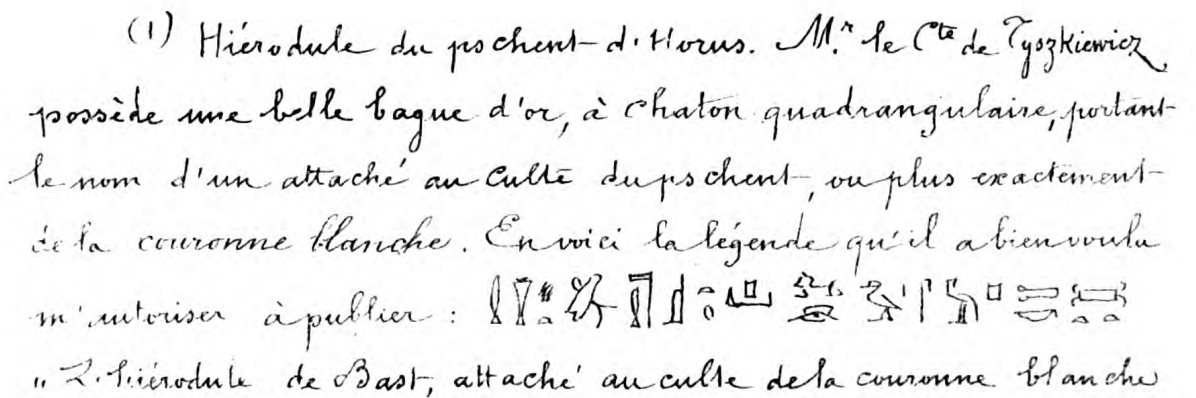 (1) Hiérodule du pschent d'Horus. M.r le Cte de Tyszkiewicz
possède une belle bague d'or, à chaton quadrangulaire, portant
le nom d'un attaché au culte du pschent, ou plus exactement
de la couronne blanche. En voici la légende qu'il a bien voulu
m'autoriser à publier :
"L'hiérodule de Bast, attaché au culte de la couronne blanche